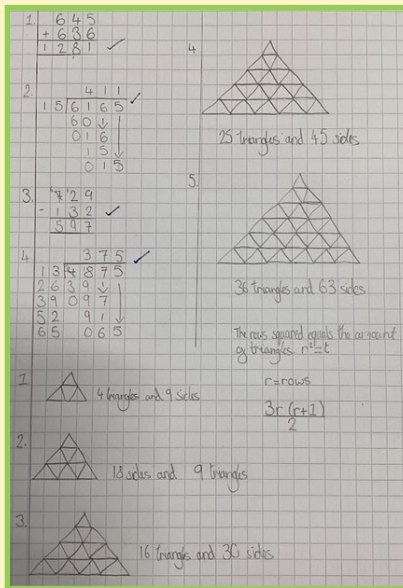 1. 645
+ 636
1281 ✓
2. 411 ✓
15 6165
60
016
15
015
3. 729
- 132 ✓
597
4. 375 ✓
13 4875
26 39
39 097
52 91
65 065
1.
4 triangles and 9 sides
2.
18 sides and 9 triangles
3.
16 triangles and 30 sides
4
25 triangles and 45 sides
5.
36 triangles and 63 sides
The rows squared equals the amount
of triangles r²=t
r=rows
3r(r+1)
2